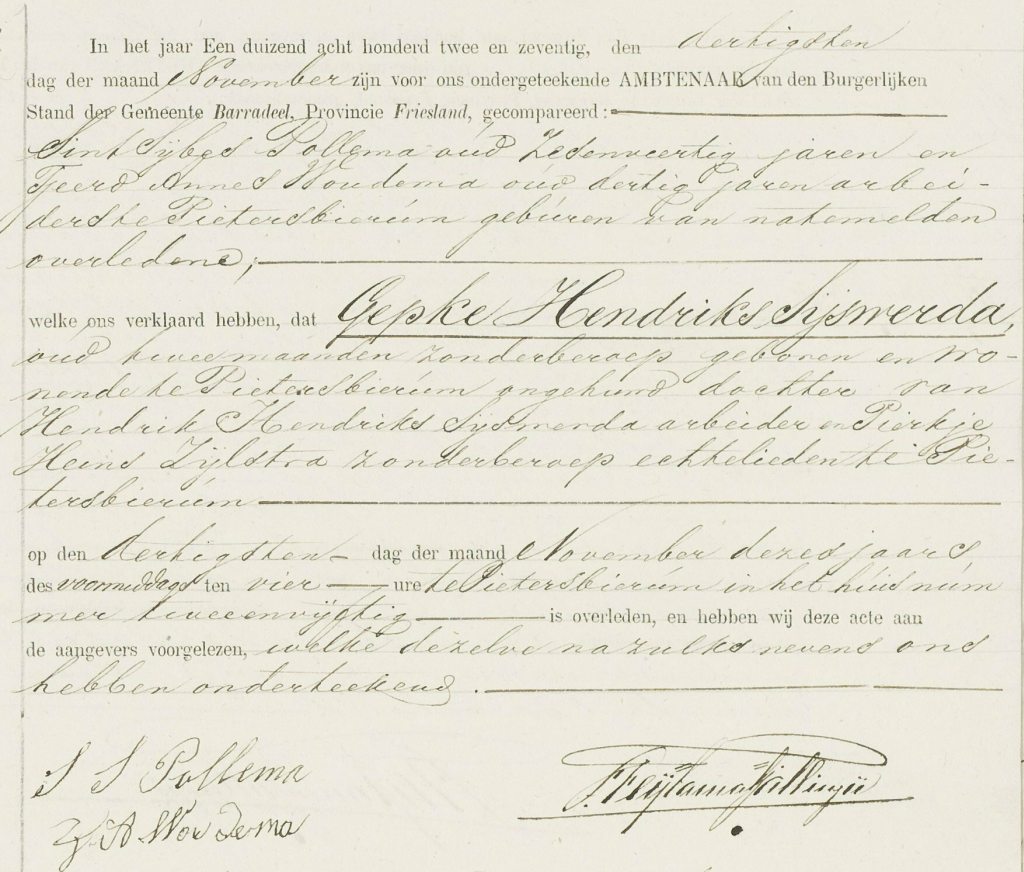 In het jaar Een duizend acht honderd twee en zeventig, den dertigsten
dag der maand November zijn voor ons ondergeteekende AMBTENAAR van den Burgerlijken
Stand der Gemeente Barradeel, Provincie Friesland, gecompareerd:
Sint Sijbes Pollema oud Zesenveertig jaren en
Tjeerd Annes Woudema oud dertig jaren arbei-
ders te Pietersbierúm gebúren van natemelden
overledene;
welke ons verklaard hebben, dat Gepke Hendriks Sijswerda,
oud twee maanden zonder beroep geboren en wo-
nende te Pietersbierúm ongehuwd dochter van
Hendrik Hendriks Sijswerda arbeider en Pierkje
Heins Zijlstra zonder beroep echtelieden te Pie-
tersbierúm
op den dertigsten dag der maand November dezes jaars
des voormiddags ten vier ure te Pietersbierúm in het húis núm
mer tweeenvijftig is overleden, en hebben wij deze acte aan
de aangevers voorgelezen, welke dezelve na zulks nevens ons
hebben onderteekend.
S S Pollema
T. A. Woudema